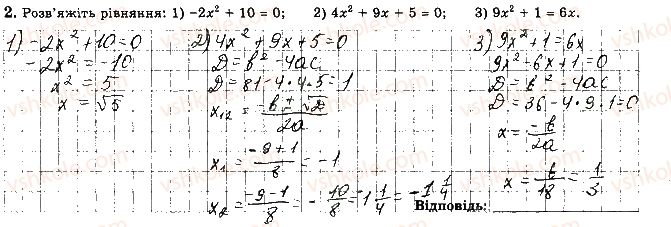 2. Розв'яжіть рівняння: 1) −2x² + 10 = 0; 2) 4x² + 9x + 5 = 0; 3) 9x² + 1 = 6x.
1) −2x² + 10 = 0
−2x² = −10
x² = 5
x = √5
2) 4x² + 9x + 5 = 0
D = b² − 4ac
D = 81 − 4 · 4 · 5 = 1
x₁₂ = (−b ± √D)/2a
x₁ = (−9 + 1)/8 = −1
x₂ = (−9 − 1)/8 = −10/8 = −1 1/4 = −1 1/4
3) 9x² + 1 = 6x
9x² − 6x + 1 = 0
D = b² − 4ac
D = 36 − 4 · 9 · 1 = 0
x = −b/2a
x = 6/18 = 1/3
Відповідь: